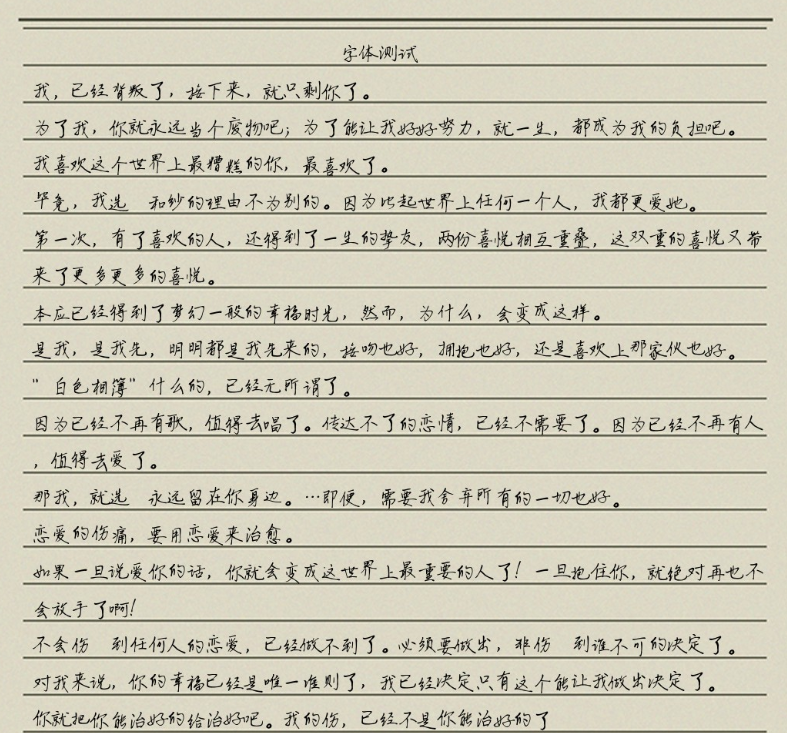 字体测试
我，已经背叛了，接下来，就只剩你了。
为了我，你就永远当个废物吧；为了能让我好好努力，就一生，都成为我的负担吧。
我喜欢这个世界上最糟糕的你，最喜欢了。
毕竟，我选 和纱的理由不为别的。因为比起世界上任何一个人，我都更爱她。
第一次，有了喜欢的人，还得到了一生的挚友，两份喜悦相互重叠，这双重的喜悦又带
来了更多更多的喜悦。
本应已经得到了梦幻一般的幸福时光，然而，为什么，会变成这样。
是我，是我先，明明都是我先来的，接吻也好，拥抱也好，还是喜欢上那家伙也好。
“白色相簿”什么的，已经无所谓了。
因为已经不再有歌，值得去唱了。传达不了的恋情，已经不需要了。因为已经不再有人
，值得去爱了。
那我，就选 永远留在你身边。…即便，需要我舍弃所有的一切也好。
恋爱的伤痛，要用恋爱来治愈。
如果一旦说爱你的话，你就会变成这世界上最重要的人了！一旦抱住你，就绝对再也不
会放手了啊！
不会伤 到任何人的恋爱，已经做不到了。必须要做出，非伤 到谁不可的决定了。
对我来说，你的幸福已经是唯一准则了，我已经决定只有这个能让我做出决定了。
你就把你能治好的给治好吧。我的伤，已经不是你能治好的了